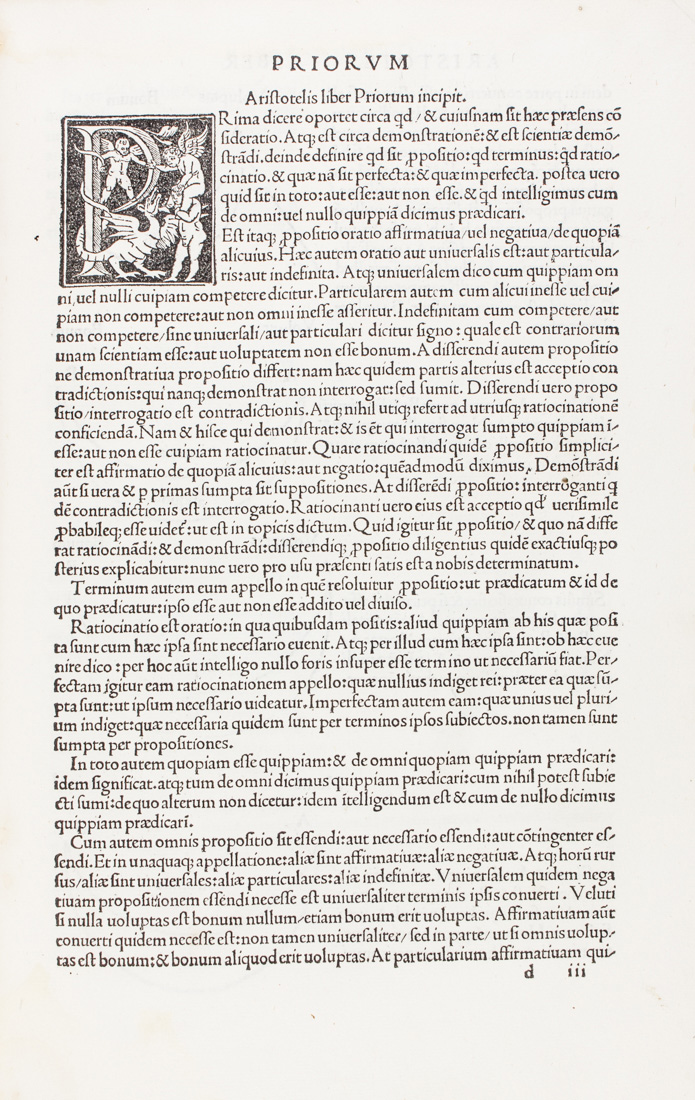 PRIORVM
Aristotelis liber Priorum incipit.
PRima dicere oportet circa qd / & cuiusnam sit hæc præsens cō
sideratio. Atq; est circa demonstrationē: & est scientiæ demō/
strādi. deinde definire qd sit ꝓpositio: qd terminus: qd ratio/
cinatio. & quæ nā sit perfecta: & quæ imperfecta. postea uero
quid sit in toto: aut esse: aut non esse. & qd intelligimus cum
de omni: uel nullo quippiā dicimus prædicari.
Est itaq; ꝓpositio oratio affirmatiua / uel negatiua / de quopiā
alicuius. Hæc autem oratio aut uniuersalis est: aut particula/
ris: aut indefinita. Atq; uniuersalem dico cum quippiam om
ni, uel nulli cuipiam competere dicitur. Particularem autem cum alicui inesse uel cui/
piam non competere: aut non omni inesse asseritur. Indefinitam cum competere / aut
non competere / sine uniuersali / aut particulari dicitur signo: quale est contrariorum
unam scientiam esse: aut uoluptatem non esse bonum. A disserendi autem propositio
ne demonstratiua propositio differt: nam hæc quidem partis alterius est acceptio con
tradictionis: qui nanq; demonstrat non interrogat: sed sumit. Disserendi uero propo
sitio / interrogatio est contradictionis. Atq; nihil utiq; refert ad utriusq; ratiocinationē
conficiendā. Nam & hisce qui demonstrat: & is ēt qui interrogat sumpto quippiam ī/
esse: aut non esse cuipiam ratiocinatur. Quare ratiocinandi quidē ꝓpositio simplici/
ter est affirmatio de quopiā alicuius: aut negatio: quēadmodū diximus. Demōstrādi
aūt si uera & p primas sumpta sit suppositiones. At disserēdi ꝓpositio: interroganti q
dē contradictionis est interrogatio. Ratiocinanti uero eius est acceptio qđ uerisimile
ꝓbabileq; esse uidet᷑: ut est in topicis dictum. Quid igitur sit ꝓpositio / & quo nā diffe
rat ratiocinādi: & demonstrādi: disserendiq; ꝓpositio diligentius quidē exactiusq; po
sterius explicabitur: nunc uero pro usu præsenti satis est a nobis determinatum.
Terminum autem eum appello in quē resoluitur ꝓpositio: ut prædicatum & id de
quo prædicatur: ipso esse aut non esse addito uel diuiso.
Ratiocinatio est oratio: in qua quibusdam positis: aliud quippiam ab his quæ posi
ta sunt cum hæc ipsa sint necessario euenit. Atq; per illud cum hæc ipsa sint: ob hæc eue
nire dico: per hoc aūt intelligo nullo foris insuper esse termino ut necessariū fiat. Per/
fectam igitur eam ratiocinationem appello: quæ nullius indiget rei: præter ea quæ sū/
pta sunt: ut ipsum necessario uideatur. Imperfectam autem eam: quæ unius uel pluri/
um indiget: quæ necessaria quidem sunt per terminos ipsos subiectos. non tamen sunt
sumpta per propositiones.
In toto autem quopiam esse quippiam: & de omni quopiam quippiam prædicari:
idem significat. atq; tum de omni dicimus quippiam prædicari: cum nihil potest subie
cti sumi: de quo alterum non dicetur: idem ītelligendum est & cum de nullo dicimus
quippiam prædicari.
Cum autem omnis propositio sit essendi: aut necessario essendi: aut cōtingenter es/
sendi. Et in unaquaq; appellatione: aliæ sint affirmatiuæ: aliæ negatiuæ. Atq; horū rur
sus / aliæ sint uniuersales: aliæ particulares: aliæ indefinitæ. Vniuersalem quidem nega
tiuam propositionem essendi necesse est uniuersaliter terminis ipsis conuerti. Veluti
si nulla uoluptas est bonum nullum / etiam bonum erit uoluptas. Affirmatiuam aūt
conuerti quidem necesse est: non tamen uniuersaliter / sed in parte / ut si omnis uolup/
tas est bonum: & bonum aliquod erit uoluptas. At particularium affirmatiuam qui/
d iii